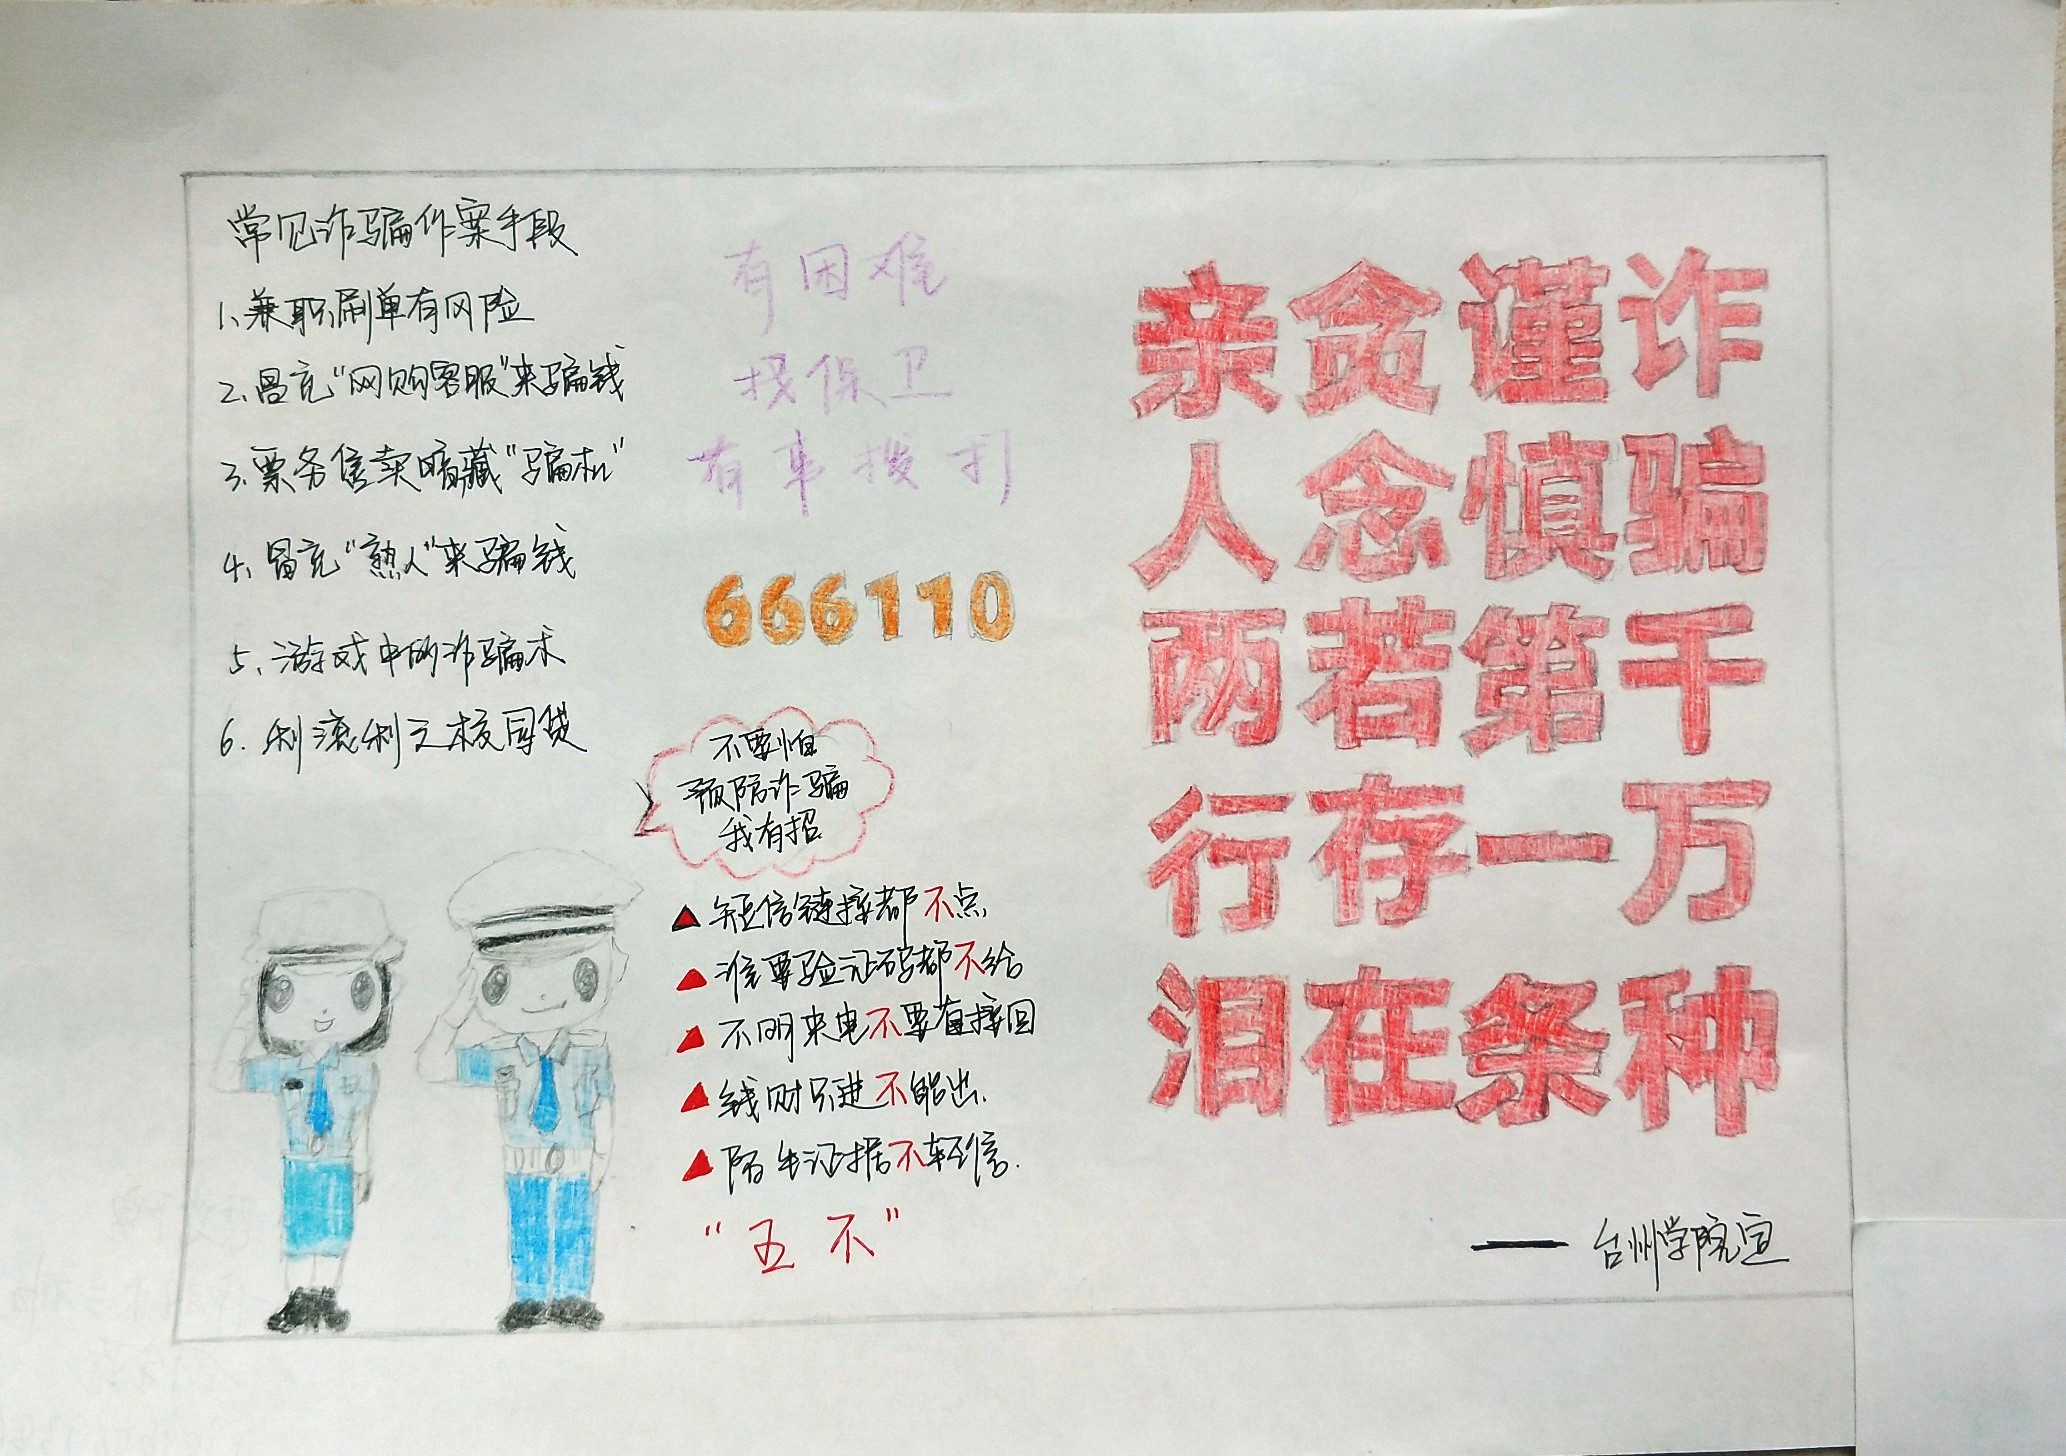 常见诈骗作案手段
1、兼职刷单有风险
2、冒充“网购客服”来骗钱
3、票务售卖暗藏“骗机”
4、冒充“熟人”来骗钱
5、游戏中的诈骗术
6、利滚利之校园贷
有困难
找保卫
有事拨打
666110
不要怕
预防诈骗
我有招
▲短信链接都不点
▲谁要验证码都不给
▲不明来电不要直接回
▲钱财只进不能出
▲陌生证据不轻信.
“五不”
诈骗千万种
谨慎第一条
贪念若存在
亲人两行泪
——台州学院宣